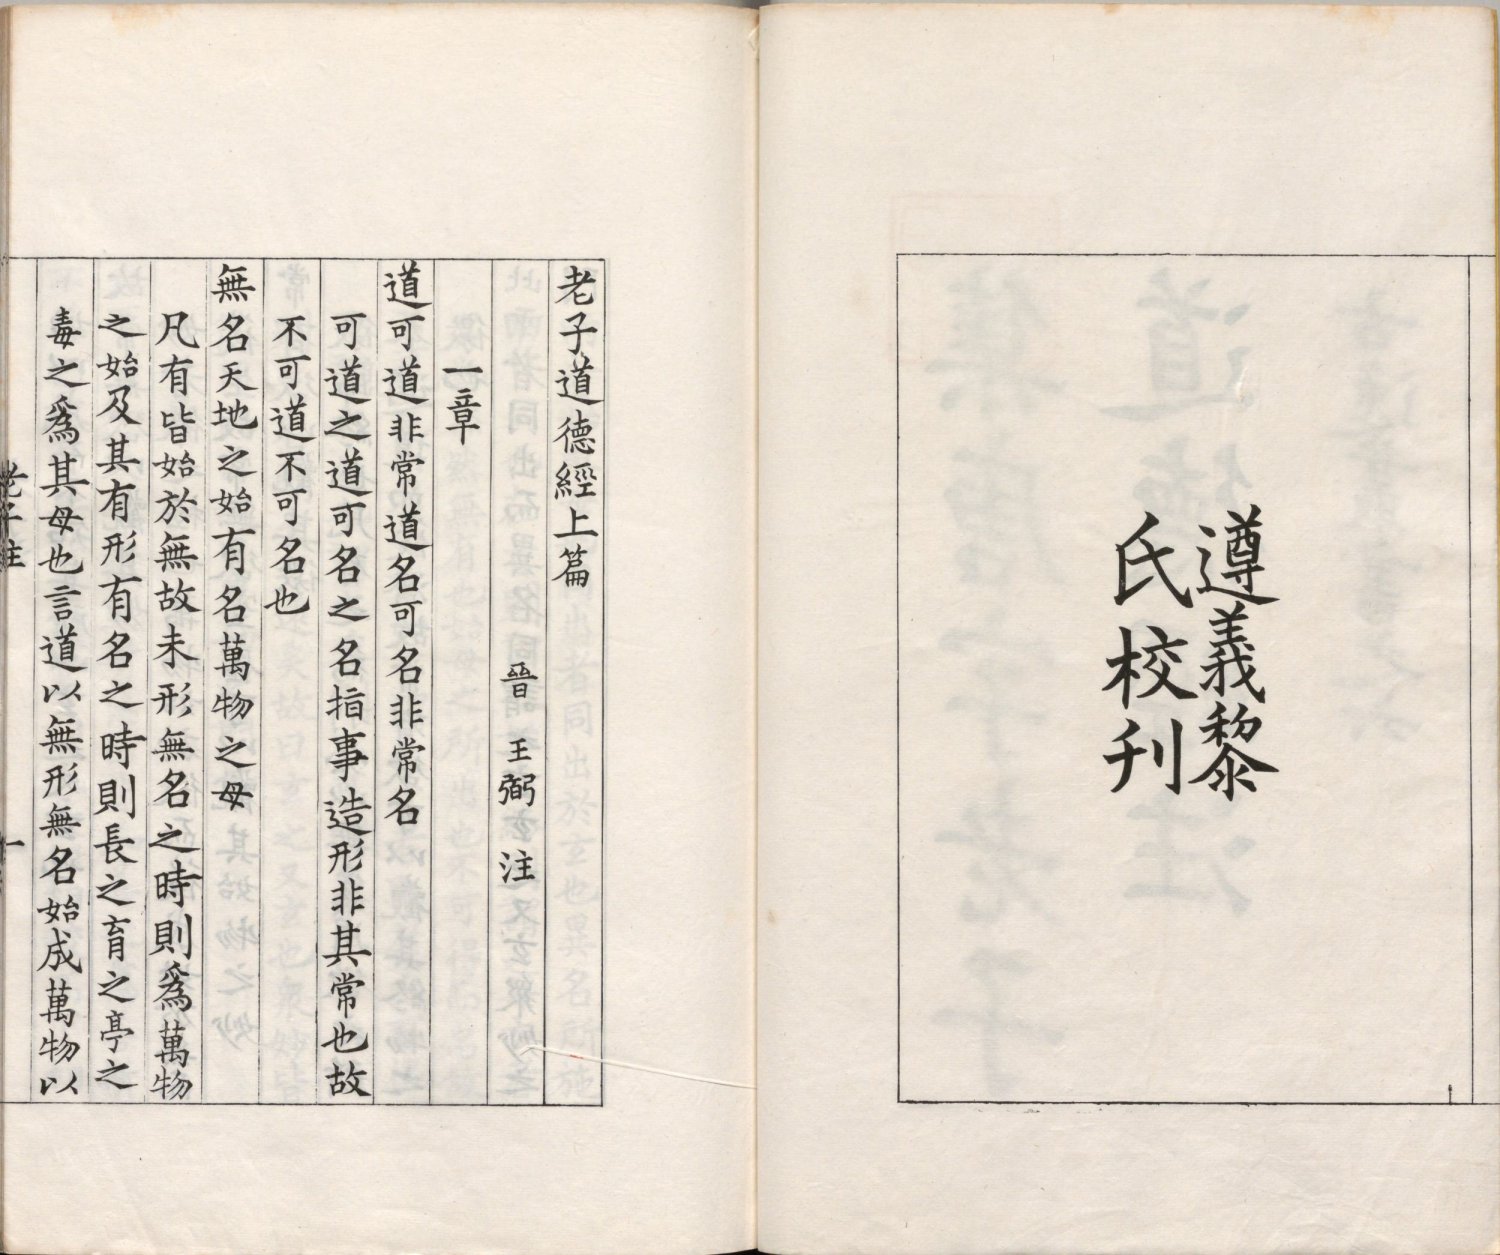 遵義黎
氏校刊
老子道德經上篇
晉 王弼 注
一章
道可道非常道名可名非常名
可道之道可名之名指事造形非其常也故
不可道不可名也
無名天地之始有名萬物之母
凡有皆始於無故未形無名之時則爲萬物
之始及其有形有名之時則長之育之亭之
毒之爲其母也言道以無形無名始成萬物以
老子注
一